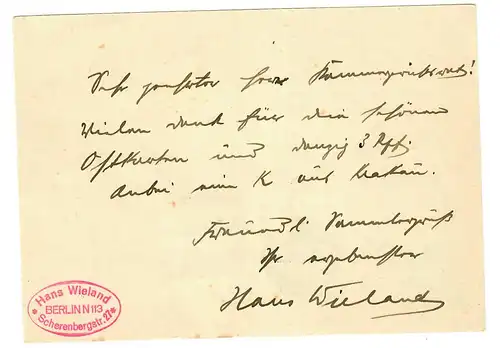 Sehr geehrter Herr Kammergerichtsrat!
Vielen Dank für die schönen
Ostkarten und Danzig 3 Pf.
Anbei eine K aus Krakau.
Freundl. Sammlergruß
Ihr ergebenster
Hans Wieland
* Hans Wieland *
BERLIN N 113
Scherenbergstr. 27